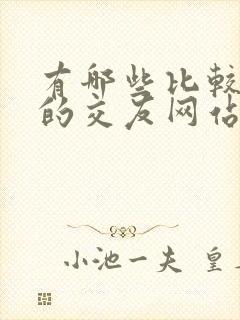 有哪些比较
的交友网
小池一夫 皇